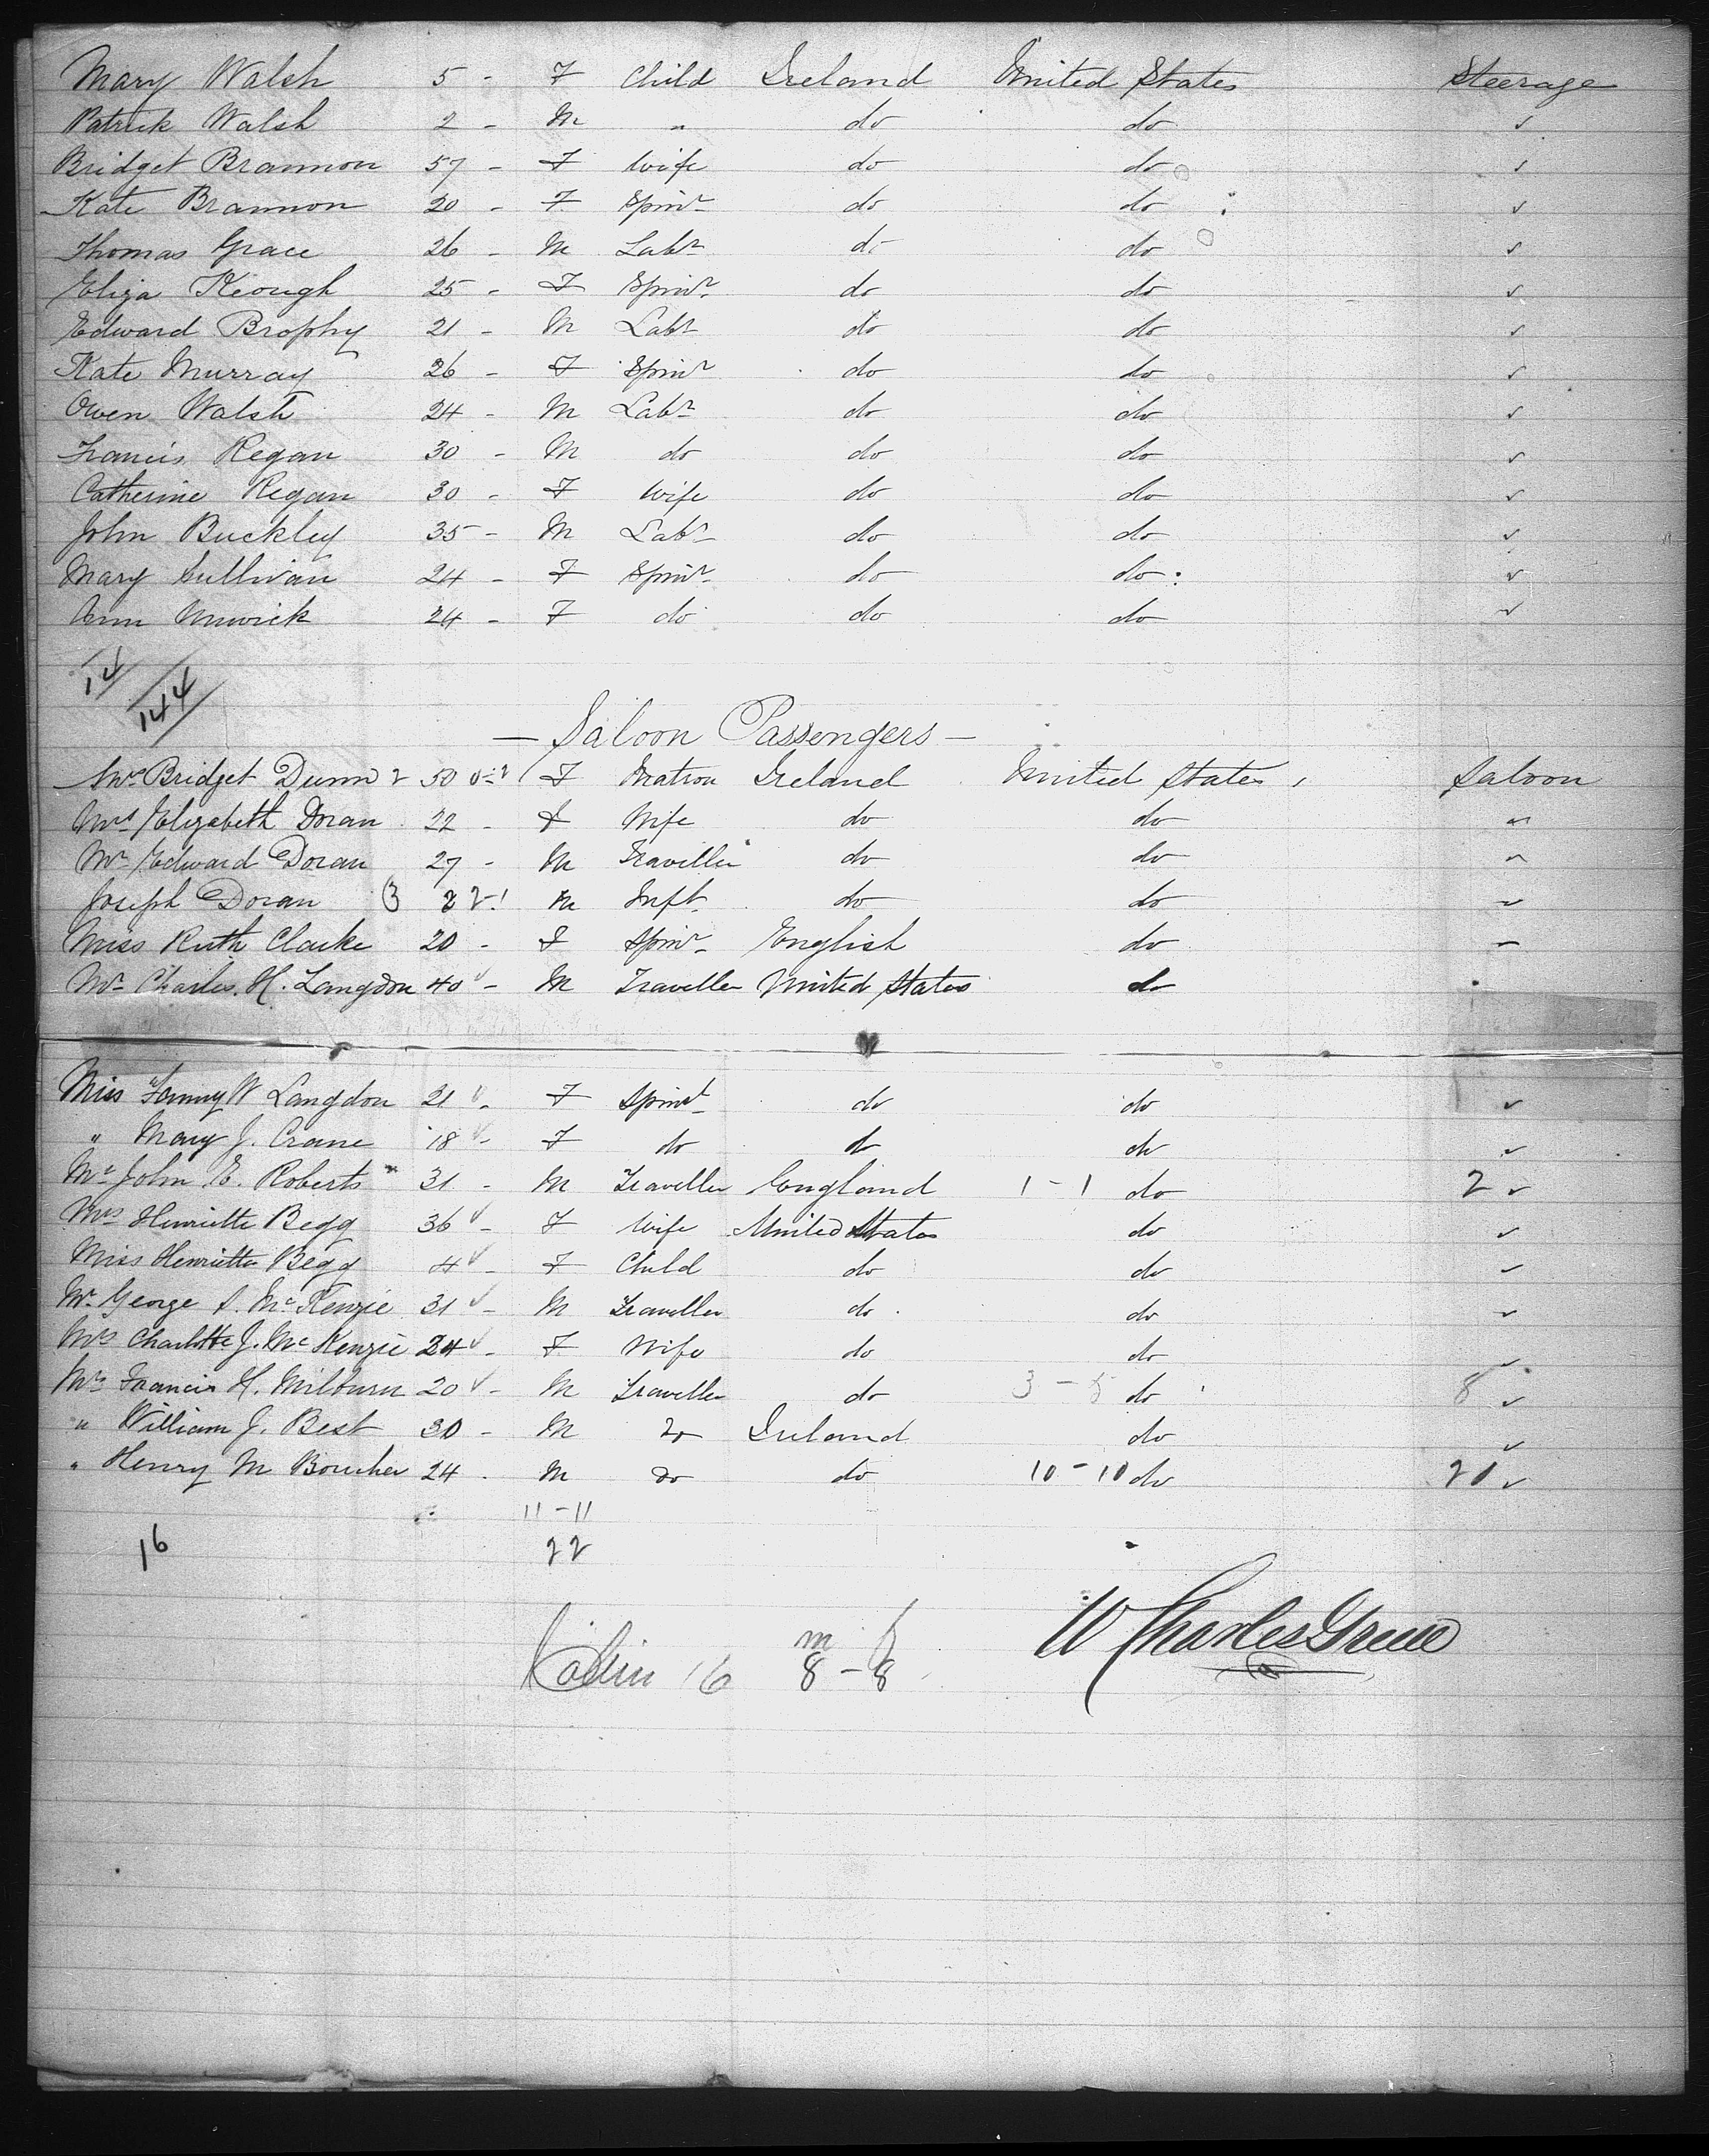 Mary Walsh 5 - F Child Ireland United States Steerage
Patrick Walsh 2 - M " do do ✓
Bridget Brannon 57 - F Wife do do ✓
Kate Brannon 20 - F Spinr do do ✓
Thomas Grace 26 - M Labr do do ✓
Eliza Keough 25 - F Spinr do do ✓
Edward Brophy 21 - M Labr do do ✓
Kate Murray 26 - F Spinr do do ✓
Owen Walsh 24 - M Labr do do ✓
Francis Regan 30 - M do do do ✓
Catherine Regan 30 - F Wife do do ✓
John Buckley 35 - M Labr do do ✓
Mary Sullivan 24 - F Spinr do do ✓
Ann 24 - F do do do ✓
14/
144/
— Saloon Passengers —
Mrs Bridget Dunn 2 50 0-2 F Matron Ireland United States Saloon
Mrs Elizabeth Doran 22 - F Wife do do "
Mr Edward Doran 27 - M Traveller do do "
Joseph Doran 3 22-1 M Inft do do ✓
Miss Ruth Clarke 20 - F Spinr English do
Mr Charles. H. Langdon 40 ✓ - M Traveller United States do
Miss Fanny W Langdon 21 ✓ - F Spinr do do ✓
" Mary J. Crane 18 ✓ - F do do do ✓
Mr John E. Roberts 31 - M Traveller England 1-1 do 2 ✓
Mrs Henriette Begg 36 ✓ - F Wife United States do ✓
Miss Henrietta Begg 4 ✓ - F Child do do ✓
Mr George S. McKenzie 31 ✓ - M Traveller do do ✓
Mrs Charlotte J. McKenzie 24 ✓ - F Wife do do ✓
Mr Francis H. Milburn 20 ✓ - M Traveller do 3-5 do 8 ✓
" William J. Best 30 - M do Ireland do ✓
" Henry M Boucher 24 - M do do 10-10 do 20 ✓
11-11
16 22
m f
Cabin 16 8-8
W Charles Green